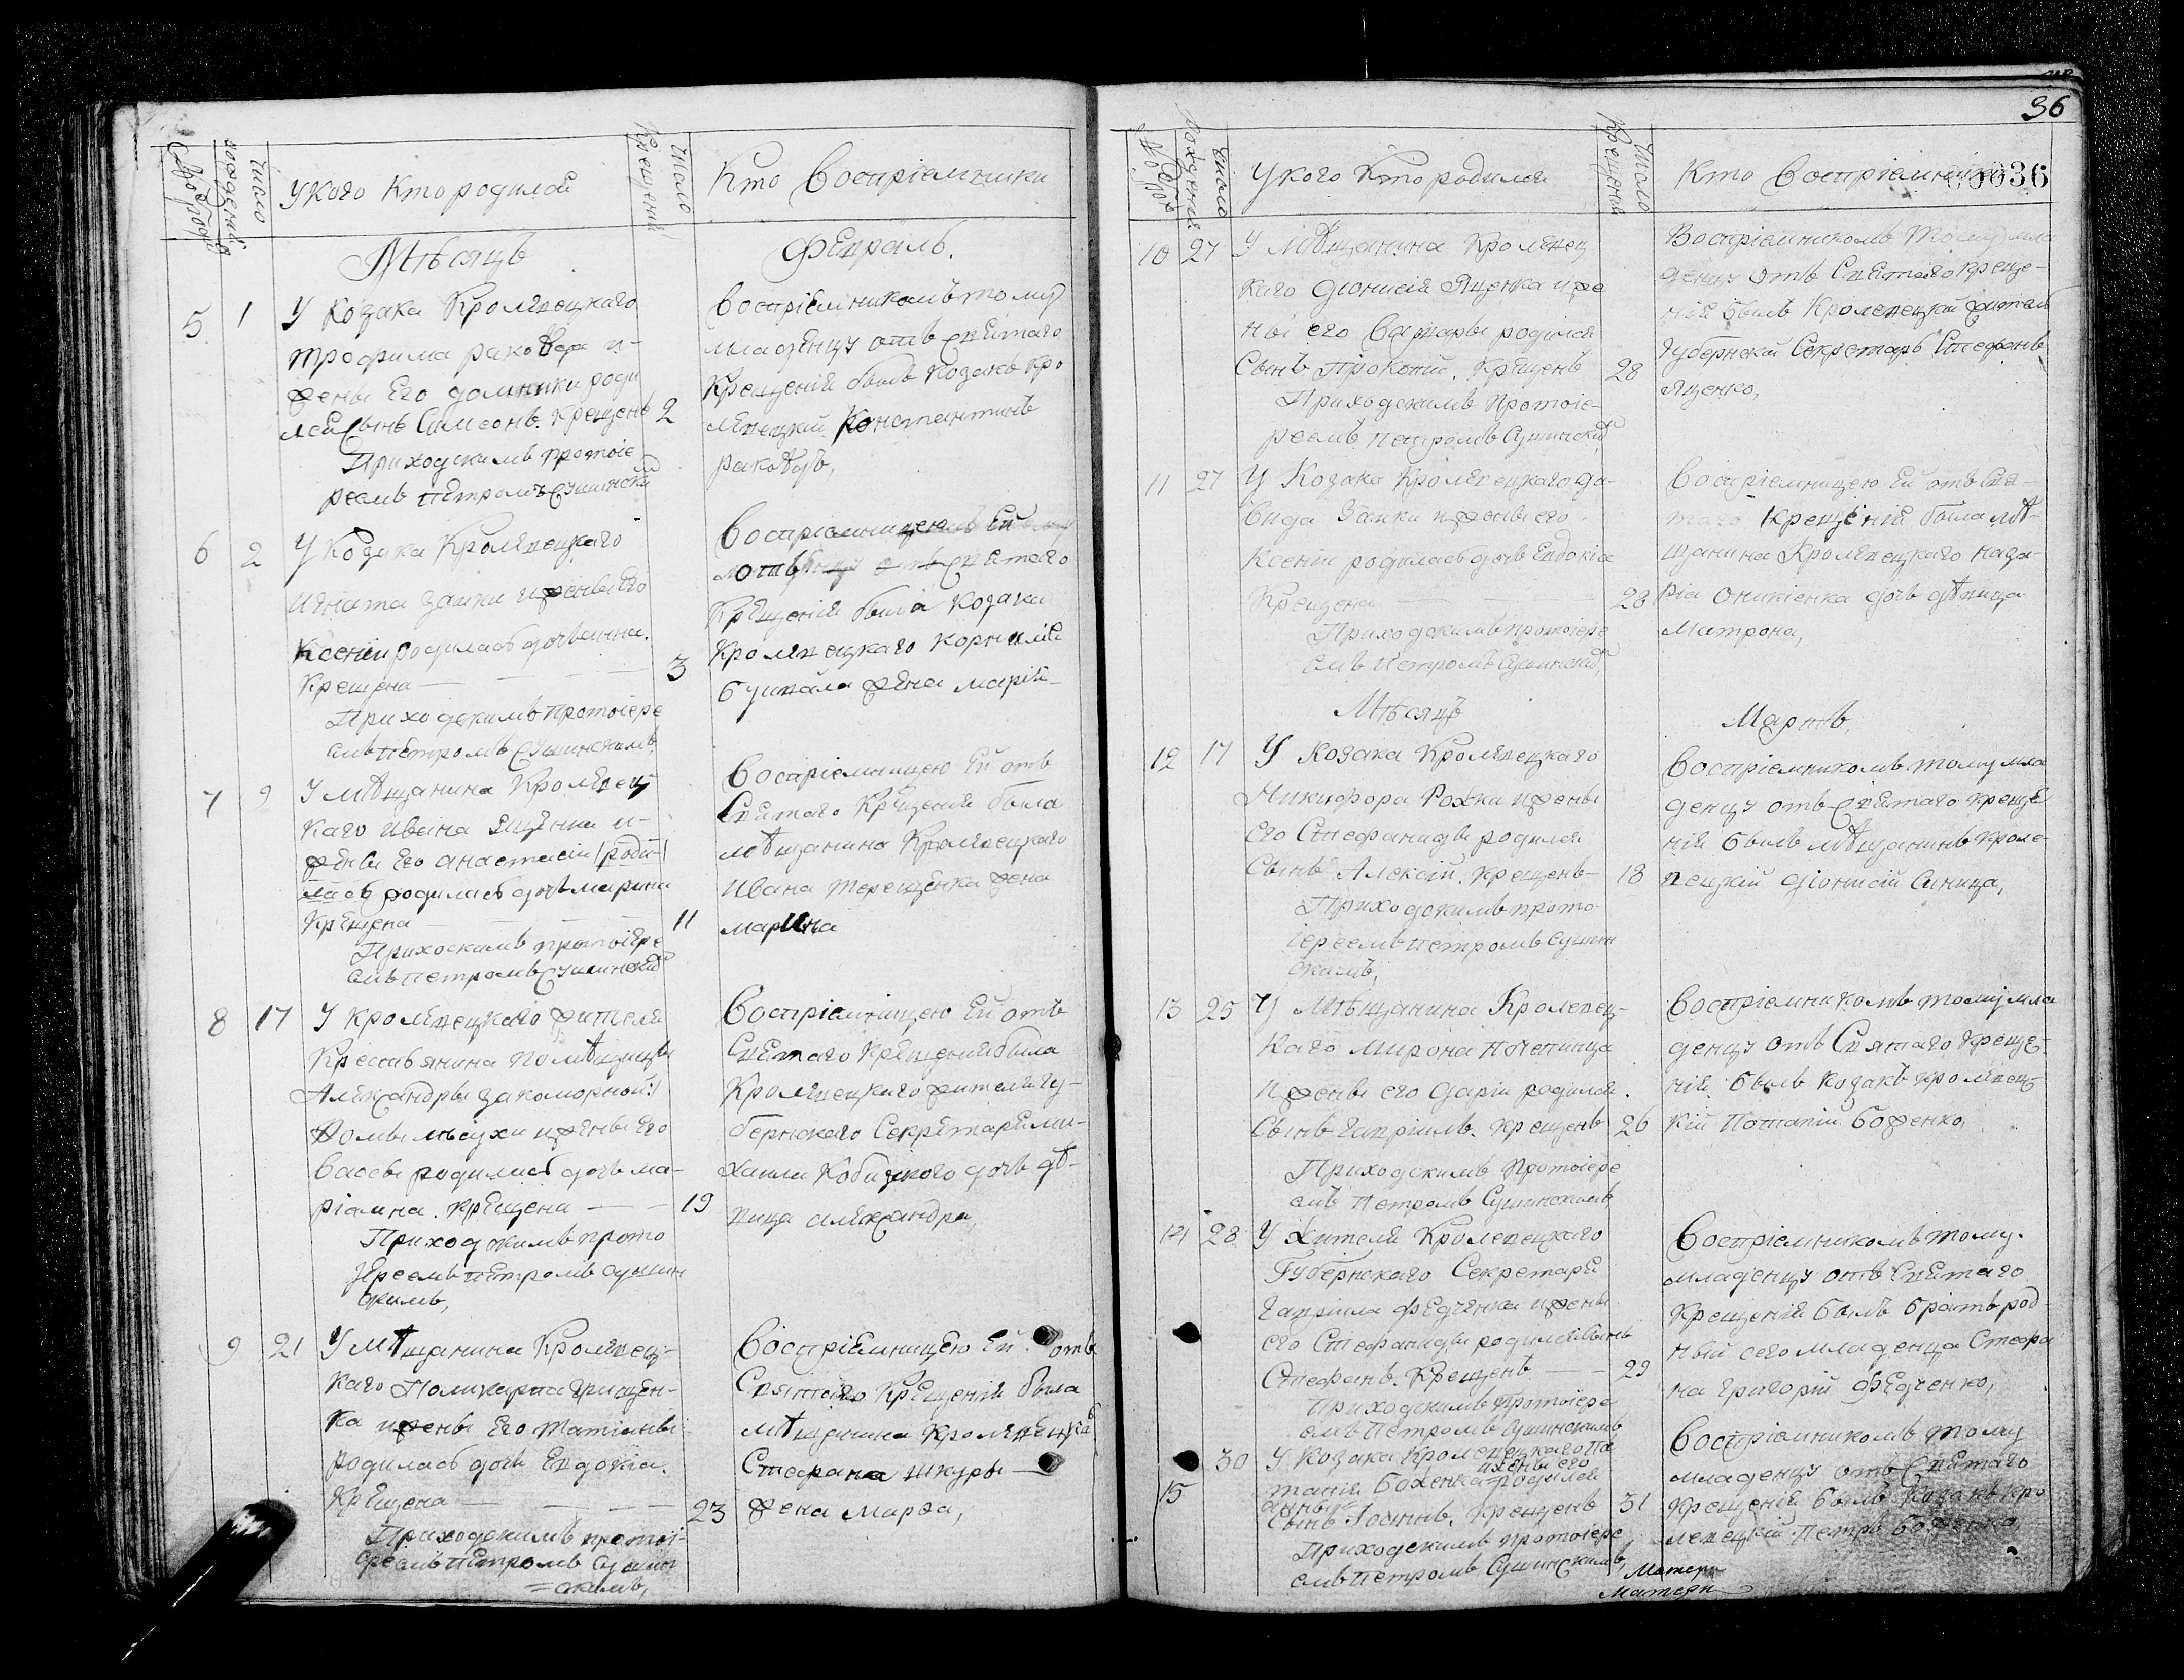 № родов
Число рожденія
У кого Кто родился
Число Крещенія
Кто Воспріемники
Мѣсяцъ
Февраль.
5
1
У Козака Кролевецкаго
трофима раковода и
жены Его домники роди
лся Сынъ Симеонъ. Крещенъ
2
Приходскимъ протоіе
реемъ петромъ Сушински
Воспріемникомъ тому
младенцу отъ святаго
Крещенія былъ Козакъ Кро
левецкій Константинъ
раководъ,
6
2
У Козака Кролевецкаго
Игната Заики и жены Его
Ксеніи родилась дочь анна.
Крещена
3
Приходскимъ Протоіере
емъ петромъ Сушинскимъ
Воспріемницею Ей
отъ святаго
Крещенія была Козака
Кролевецкаго Корнилія
бувала жена марія
7
9
У мѣщанина Кролевец
каго Ивана Яценка и
жены Его анастасіи /роди-/
лась родилась дочь марина
Крещена
11
Прихоскимъ протоіере
емъ петромъ Сушински
Воспріемницею Ей отъ
Святаго Крещенія была
мѣщанина Кролевецкаго
Ивана терещенка жена
марина
8
17
У Кролевецкаго жителя
Крестьянина помѣщицы
Александры закоморной
жены Его
Вассы родилась дочь ма-
ріамна. Крещена
19
Приходскимъ прото
іереемъ петромъ сушин
скимъ,
Воспріемницею Ей отъ
Святаго Крещенія была
Кролевецкаго жителя гу-
бернскаго Секретаря ми-
хаила Кобизкого дочь дѣ-
вица александра,
9
21
У мѣщанина Кролевец-
каго Поликарпа грищен-
ка и жены Его татіаны
родилась дочь Евдокіа.
Крещена
23
Приходскимъ протоі-
ереемъ петромъ Сушин
=скимъ,
Воспріемницею Ей отъ
Святаго Крещенія была
мѣщанина Кролевецка
Стефана шкуры
жена марфа,
36
00036
№ родов
Число Рожденія
У кого Кто родился
Число Крещенія
Кто Воспріемники
10
27
У Мѣщанина Кролевец
каго Діонисія Яценка и же
ны его Варвары родился
Сынъ Прокопій. Крещенъ
28
Приходскимъ Протоіе-
реемъ Петромъ Сушински
Воспріемникомъ тому мла
денцу отъ Святаго Креще-
нія былъ Кролевецкій житель
Губернскій Секретарь Стефанъ
Яценко,
11
27
У Козака Кролевецкаго Да-
вида Заики и жены его
Ксеніи родилась дочь Евдокіа
Крещена
28
Приходскимъ протоіере
емъ Петромъ Сушински
Воспріемницею Ей отъ Свя-
таго Крещенія была мѣ-
щанина Кролевецкаго наза-
рія Оникіенка дочь дѣвица
Матрона,
Мѣсяцъ
Мартъ,
12
17
У Козака Кролевецкаго
Никифора Рожки и жены
его Стефаниды родился
Сынъ Алексій. Крещенъ
18
Приходскимъ прото
іереемъ петромъ Сушин
скимъ,
Воспріемникомъ тому мла
денцу отъ Святаго Креще
нія былъ мѣщанинъ Кроле
вецкій Діонисій Синица,
13
25
У Мѣщанина Кролевец-
каго Мирона
и жены его Даріи родился
Сынъ Гавріилъ. Крещенъ
26
Приходскимъ Протоіере
емъ Петромъ Сушинскимъ
Воспріемникомъ тому мла
денцу отъ Святаго Креще
нія былъ Козакъ Кролевец-
кій Потапій Боженко,
14
28
У Жителя Кролевецкаго
Губернскаго Секретаря
Гавріила Федченка и жены
его Стефаниды родился Сынъ
Стефанъ. Крещенъ
29
Приходскимъ Протоіере
емъ Петромъ Сушинскимъ
Воспріемникомъ тому
младенцу отъ Святаго
Крещенія былъ братъ род-
ный сего младенца Стефа
на Григорій Федченко,
15
30
У Козака Кролевецкаго По
тапія Боженка и жены его родился
Сынъ Іоаннъ. Крещенъ
31
Приходскимъ Протоіере
емъ Петромъ Сушинскимъ
Воспріемникомъ тому
младенцу отъ Святаго
Крещенія былъ Козакъ Кро
левецкій Петръ Боженко
Матери
Матери